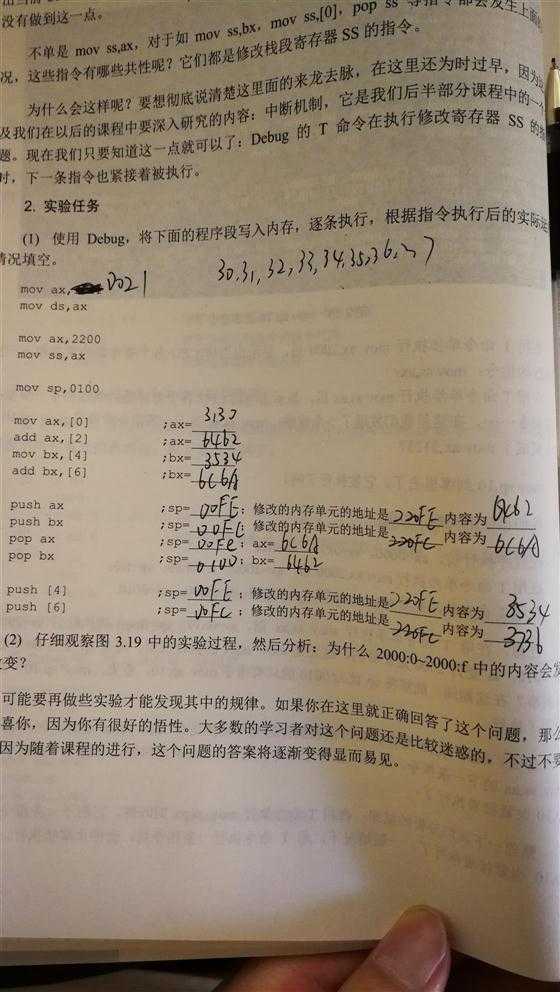 没有做到这一点。
不单是 mov ss,ax，对于如 mov ss,bx，mov ss,[0]，pop ss 等指令都会发生上面的
况，这些指令有哪些共性呢？它们都是修改栈段寄存器 SS 的指令。
为什么会这样呢？要想彻底说清楚这里面的来龙去脉，在这里还为时过早，因为
及我们在以后的课程中要深入研究的内容：中断机制，它是我们后半部分课程中的一个
题。现在我们只要知道这一点就可以了：Debug 的 T 命令在执行修改寄存器 SS 的指
时，下一条指令也紧接着被执行。
2. 实验任务
(1) 使用 Debug，将下面的程序段写入内存，逐条执行，根据指令执行后的实际运
情况填空。
30,31,32,33,34,35,36,37
mov ax, 0021
mov ds,ax
mov ax,2200
mov ss,ax
mov sp,0100
mov ax,[0] ;ax= 3130
add ax,[2] ;ax= 6462
mov bx,[4] ;bx= 3534
add bx,[6] ;bx= 6C6A
push ax ;sp= 00FE ; 修改的内存单元的地址是 220FE 内容为 6462
push bx ;sp= 00FC ; 修改的内存单元的地址是 220FC 内容为 6C6A
pop ax ;sp= 00FE ; ax= 6C6A
pop bx ;sp= 0100 ; bx= 6462
push [4] ;sp= 00FE ; 修改的内存单元的地址是 220FE 内容为 3534
push [6] ;sp= 00FC ; 修改的内存单元的地址是 220FC 内容为 3736
(2) 仔细观察图 3.19 中的实验过程，然后分析：为什么 2000:0~2000:f 中的内容会发
改变？
可能要再做些实验才能发现其中的规律。如果你在这里就正确回答了这个问题，那么
喜你，因为你有很好的悟性。大多数的学习者对这个问题还是比较迷惑的，不过不要
因为随着课程的进行，这个问题的答案将逐渐变得显而易见。